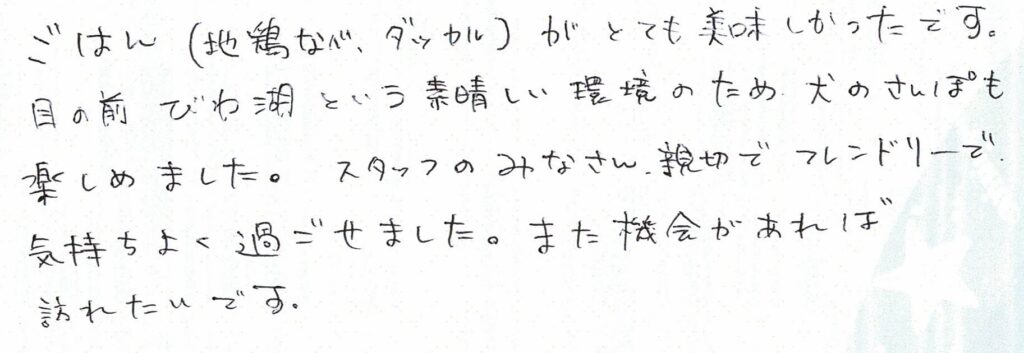 ごはん (地鶏なべ、ダッカル) がとても美味しかったです。
目の前 びわ湖という素晴しい環境のため 犬のさんぽも
楽しめました。 スタッフのみなさん、親切でフレンドリーで、
気持ちよく過ごせました。また機会があれば
訪れたいです。